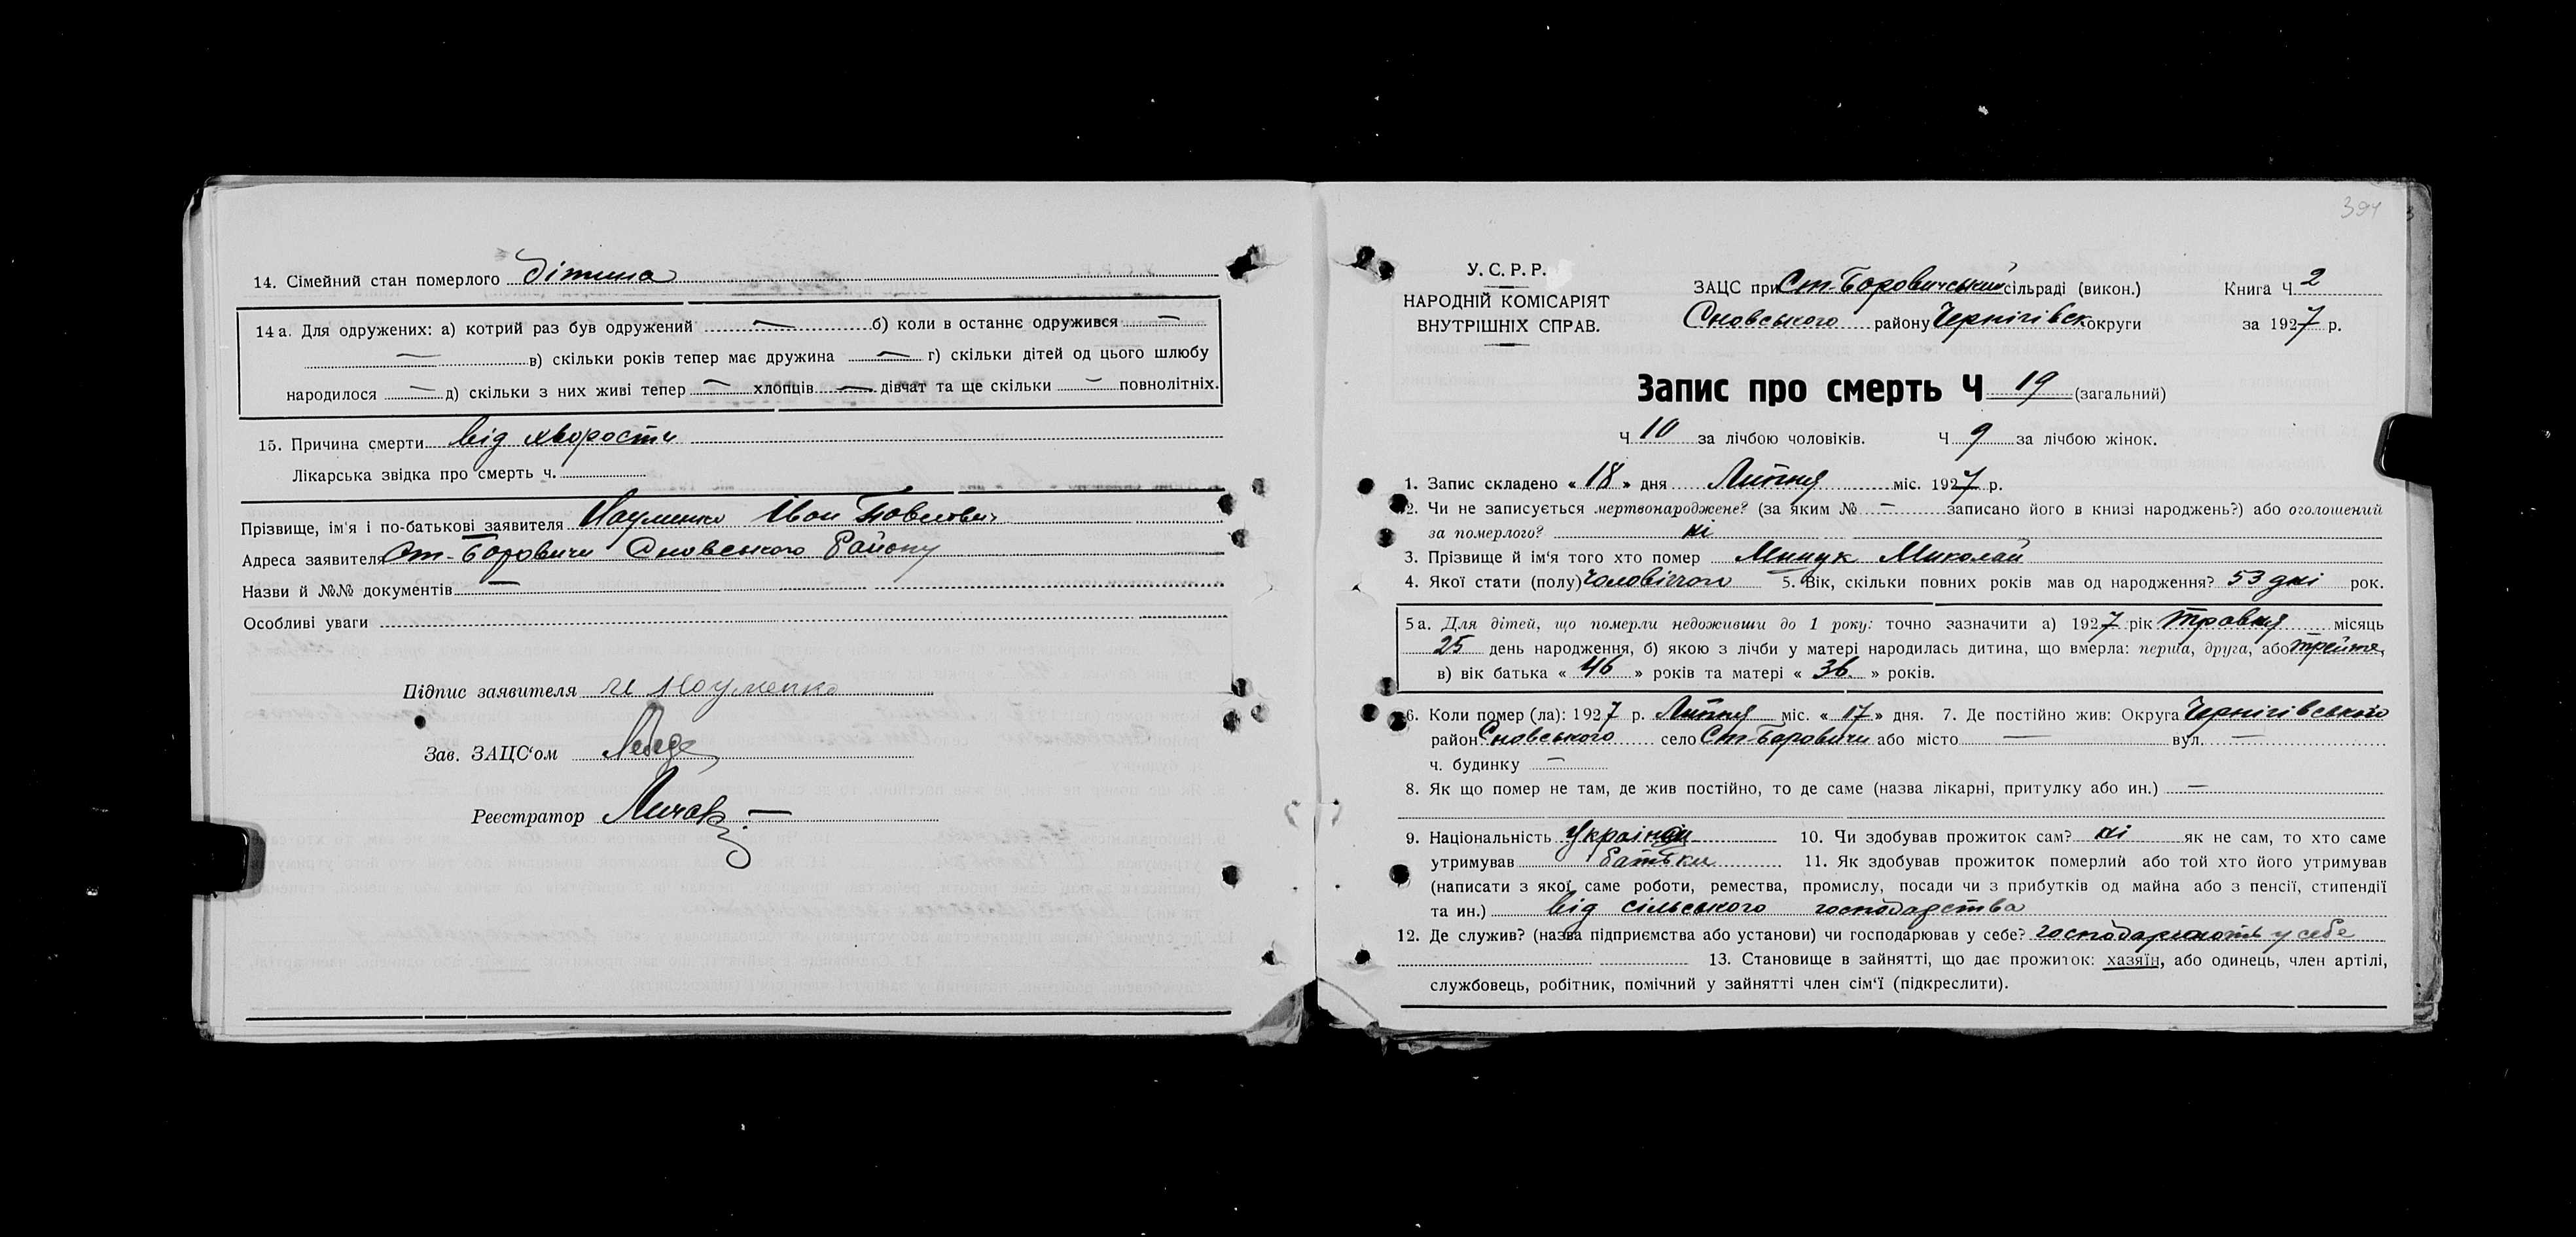 14. Сімейний стан померлого дітина
14а. Для одружених: а) котрий раз був одружений — б) коли в останнє одружився —
— в) скільки років тепер має дружина — г) скільки дітей од цього шлюбу
народилося — д) скільки з них живі тепер — хлопців — дівчат та ще скільки — повнолітніх.
15. Причина смерти від хворости
Лікарська звідка про смерть ч.
Прізвище, ім'я і по-батькові заявителя Науменко Іван Павлович
Адреса заявителя Ст-Боровичи Сновського Району
Назви й №№ документів —
Особливі уваги
Підпис заявителя И Науменко
Зав. ЗАЦС'ом
Реєстратор
394
У. С. Р. Р.
НАРОДНІЙ КОМІСАРІЯТ
ВНУТРІШНІХ СПРАВ.
ЗАЦС при Ст-Боровичський сільраді (викон.) Книга Ч. 2
Сновського району Чернігівск округи за 1927 р.
Запис про смерть Ч 19 (загальний)
Ч 10 за лічбою чоловіків. Ч 9 за лічбою жінок.
1. Запис складено « 18 » дня Липня міс. 1927 р.
2. Чи не записується мертвонароджене? (за яким № — записано його в книзі народжень?) або оголошений
за померлого? ні
3. Прізвище й ім'я того хто помер Миколай
4. Якої стати (полу) 5. Вік, скільки повних років мав од народження? 53 дні рок.
5а. Для дітей, що померли недоживши до 1 року: точно зазначити а) 1927 рік Травня місяць
25 день народження, б) якою з лічби у матері народилась дитина, що вмерла: перша, друга, або трейтя,
в) вік батька « 46 » років та матері « 36. » років.
6. Коли помер (ла): 1927 р. Липня міс. « 17 » дня. 7. Де постійно жив: Округа Чернігівського
район Сновського село Ст-Баровичи або місто — вул. —
ч. будинку —
8. Як що помер не там, де жив постійно, то де саме (назва лікарні, притулку або ин.) —
9. Національність 10. Чи здобував прожиток сам? ні як не сам, то хто саме
утримував батьки 11. Як здобував прожиток померлий або той хто його утримував
(написати з якої саме роботи, ремества, промислу, посади чи з прибутків од майна або з пенсії, стипендії
та ин.) від сільського господарства
12. Де служив? (назва підприємства або установи) чи господарював у себе? господарюють у себе
13. Становище в зайнятті, що дає прожиток: хазяїн, або одинець, член артілі,
службовець, робітник, помічний у зайнятті член сім'ї (підкреслити).